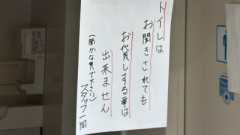 トイレは
お聞きされても
お貸しする事は
出来ません
(聞かないで下さい)
スタッフ一同